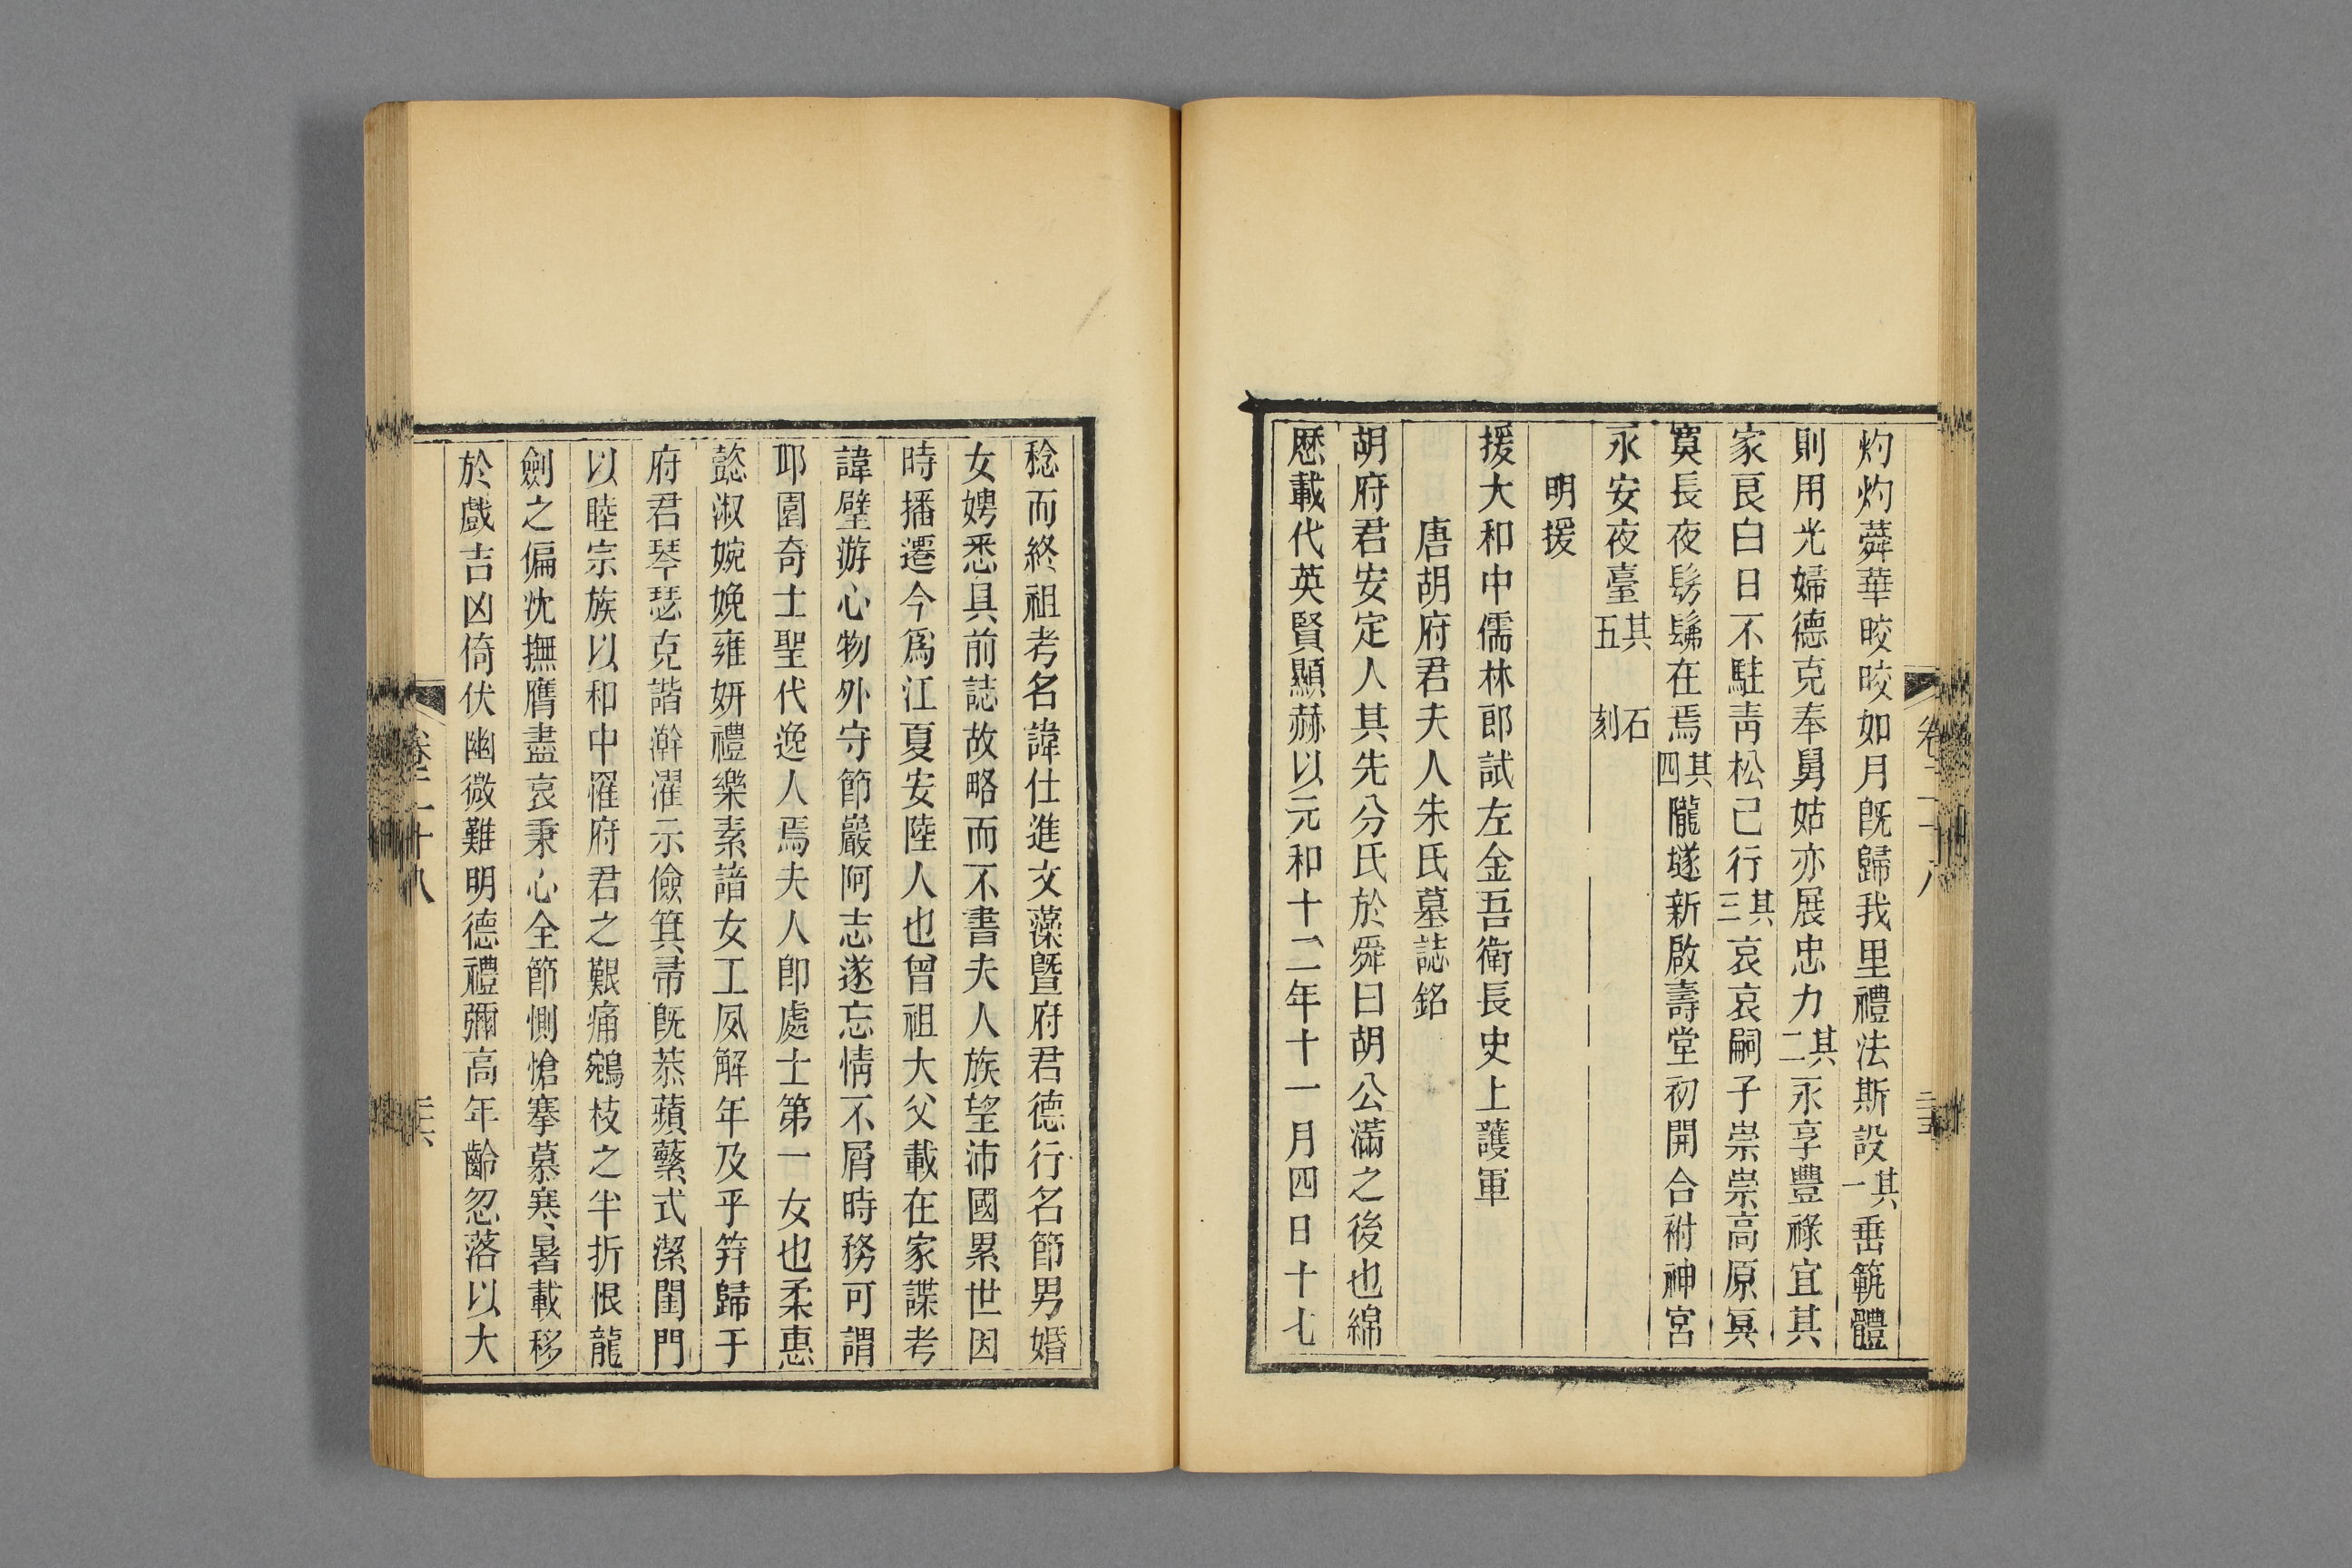 灼灼蕣華晈晈如月旣歸我里禮法斯設其一垂範體
則用光婦德克奉舅姑亦展忠力其二永享豐祿宜其
家艮白日不駐靑松已行其三哀哀嗣子崇崇高原冥
冥長夜髣髴在焉其四隴墜新啟壽堂初開合祔神宮
永安夜臺其五 石刻
明援
援大和中儒林郎試左金吾衛長史上護軍
唐胡府君夫人朱氏墓誌銘
胡府君安定人其先分氏於舜曰胡公滿之後也綿
歷載代英賢顯赫以元和十二年十一月四日十七
稔而終祖考名諱仕進文藻曁府君德行名節男婚
女娉悉具前誌故略而不書夫人族望沛國累世因
時播遷今爲江夏安陸人也曾祖大父載在家諜考
諱璧游心物外守節嚴阿志遂忘情不屑時務可謂
邛園奇士聖代逸人焉夫人卽處士第一女也柔惠
懿淑婉娩雍妍禮樂素諳女工夙解年及乎笄歸于
府君琴瑟克諧澣濯示儉箕帚旣恭蘋蘩式潔閨門
以睦宗族以和中罹府君之艱痛鵷枝之半折恨龍
劍之偏沈撫膺盡哀秉心全節惻愴搴慕寒暑載移
於戲吉凶倚伏幽微難明德禮彌高年齡忽落以大
卷二十八
二十六